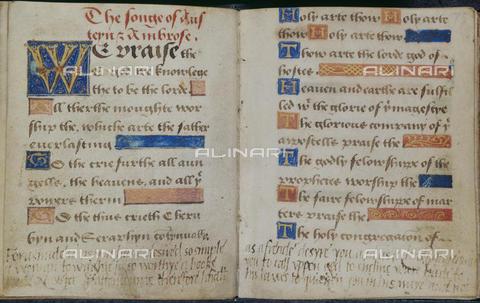 The songe of Aus
ten & Ambrose.
We praise the
we knowlege
the to be the lorde
All therthe moughte wor
ship the, whiche arte the father
everlasting
To the crie furthe all aun
gells, the heavens, and all yͤ
powers therin
To the thus crieth Cheru
byn and Seraphyn contynually
so simple
a woman to so worthye a booke
good therefore
Holy arte thow Holy arte
thow Holy arte thow
Thow arte the lorde god of
hostes
Heaven and earthe are fulfil
led wͭ the glorie of yͥ magestye
The glorious company of yͤ
apostells praise the
The godly felowshipe of the
prophetes worship the
The faire felowshipe of mar
ters praise the
The holy congregacion of
as a desyre you
to call uppon god to enclyne your harte to
his lawes to quicken you in his waye
ALINARI
ALINARI
ALINARI
ALINARI